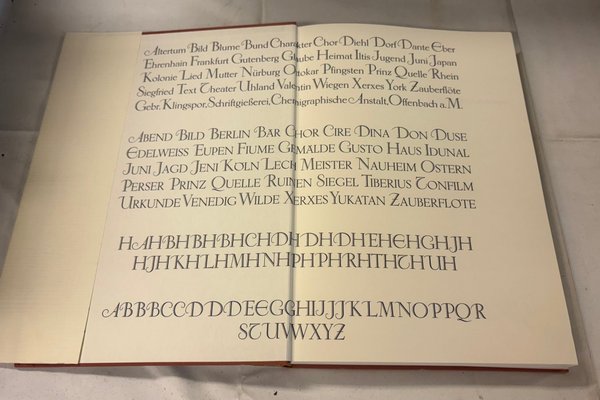 Altertum Bild Blume Bund Charakter Chor Diehl Dorf Dante Eber
Ehrenhain Frankfurt Gutenberg Glaube Heimat Iltis Jugend Juni Japan
Kolonie Lied Mutter Nürburg Ottokar Pfingsten Prinz Quelle Rhein
Siegfried Text Theater Uhland Valentin Wiegen Xerxes York Zauberflöte
Gebr. Klingspor, Schriftgießerei, Chemigraphische Anstalt, Offenbach a.M.
ABEND BILD BERLIN BÄR CHOR CIRE DINA DON DUSE
EDELWEISS EUPEN FIUME GEMALDE GUSTO HAUS IDUNAL
JUNI JAGD JENI KÖLN LECH MEISTER NAUHEIM OSTERN
PERSER PRINZ QUELLE RUINEN SIEGEL TIBERIUS TONFILM
URKUNDE VENEDIG WILDE XERXES YUKATAN ZAUBERFLÖTE
HAHBHBHBHCHDHDHDHEHEHGHJH
HJHKHLHMHNHPHPHRHTHTHUH
ABBBCCDDDEEGGHIJJJKLMNOPPQR
STUVWXYZ